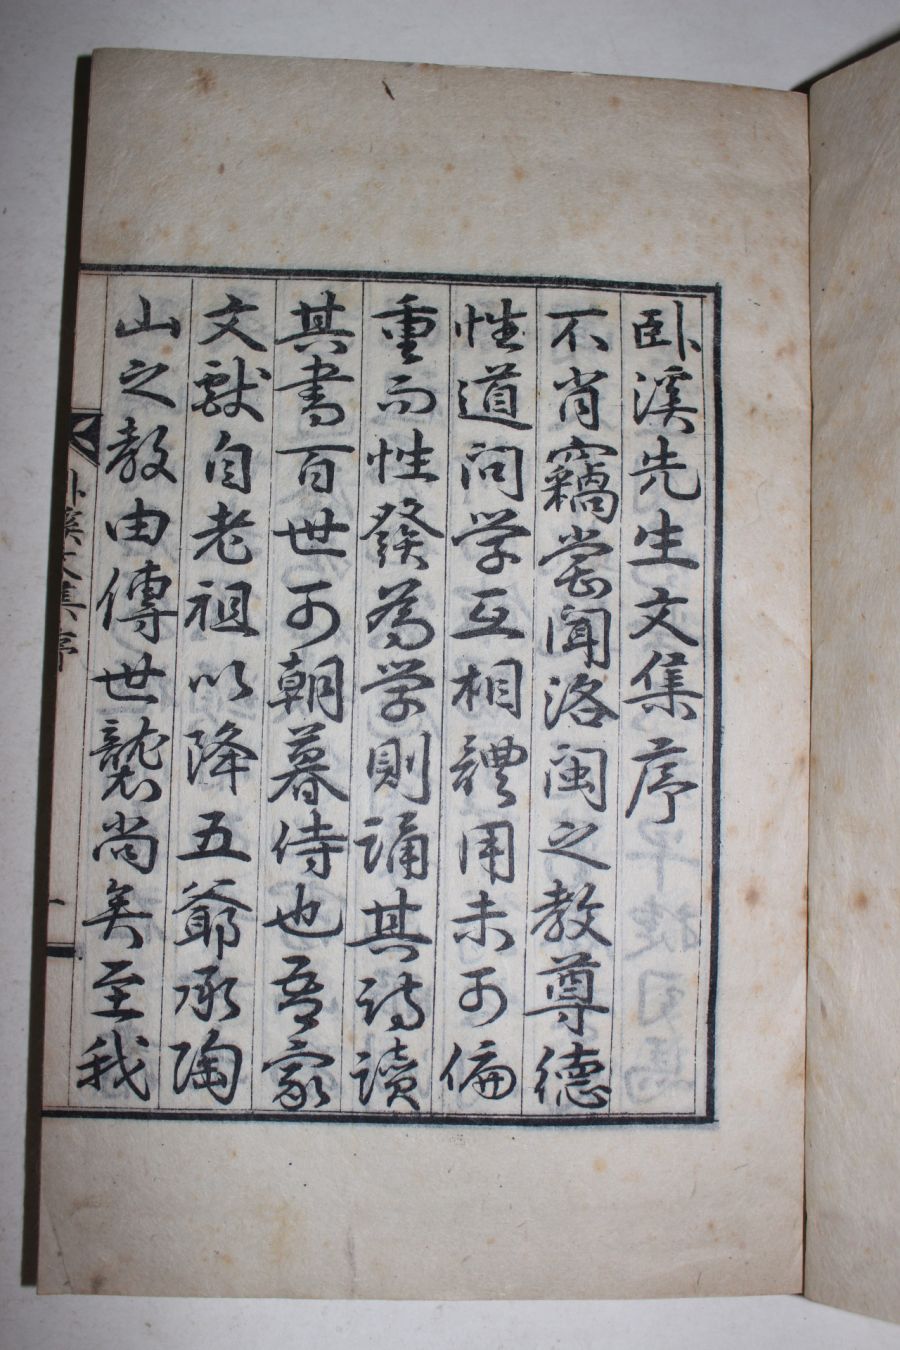 臥溪先生文集序
不肖竊嘗聞洛閩之教尊德
性道問学互相體用未可偏
重而性發爲学則誦其詩讀
其書百世可朝暮侍也吾家
文獻自老祖以降五爺承陶
山之教由傳世襲尚矣至我
臥溪文集序
一